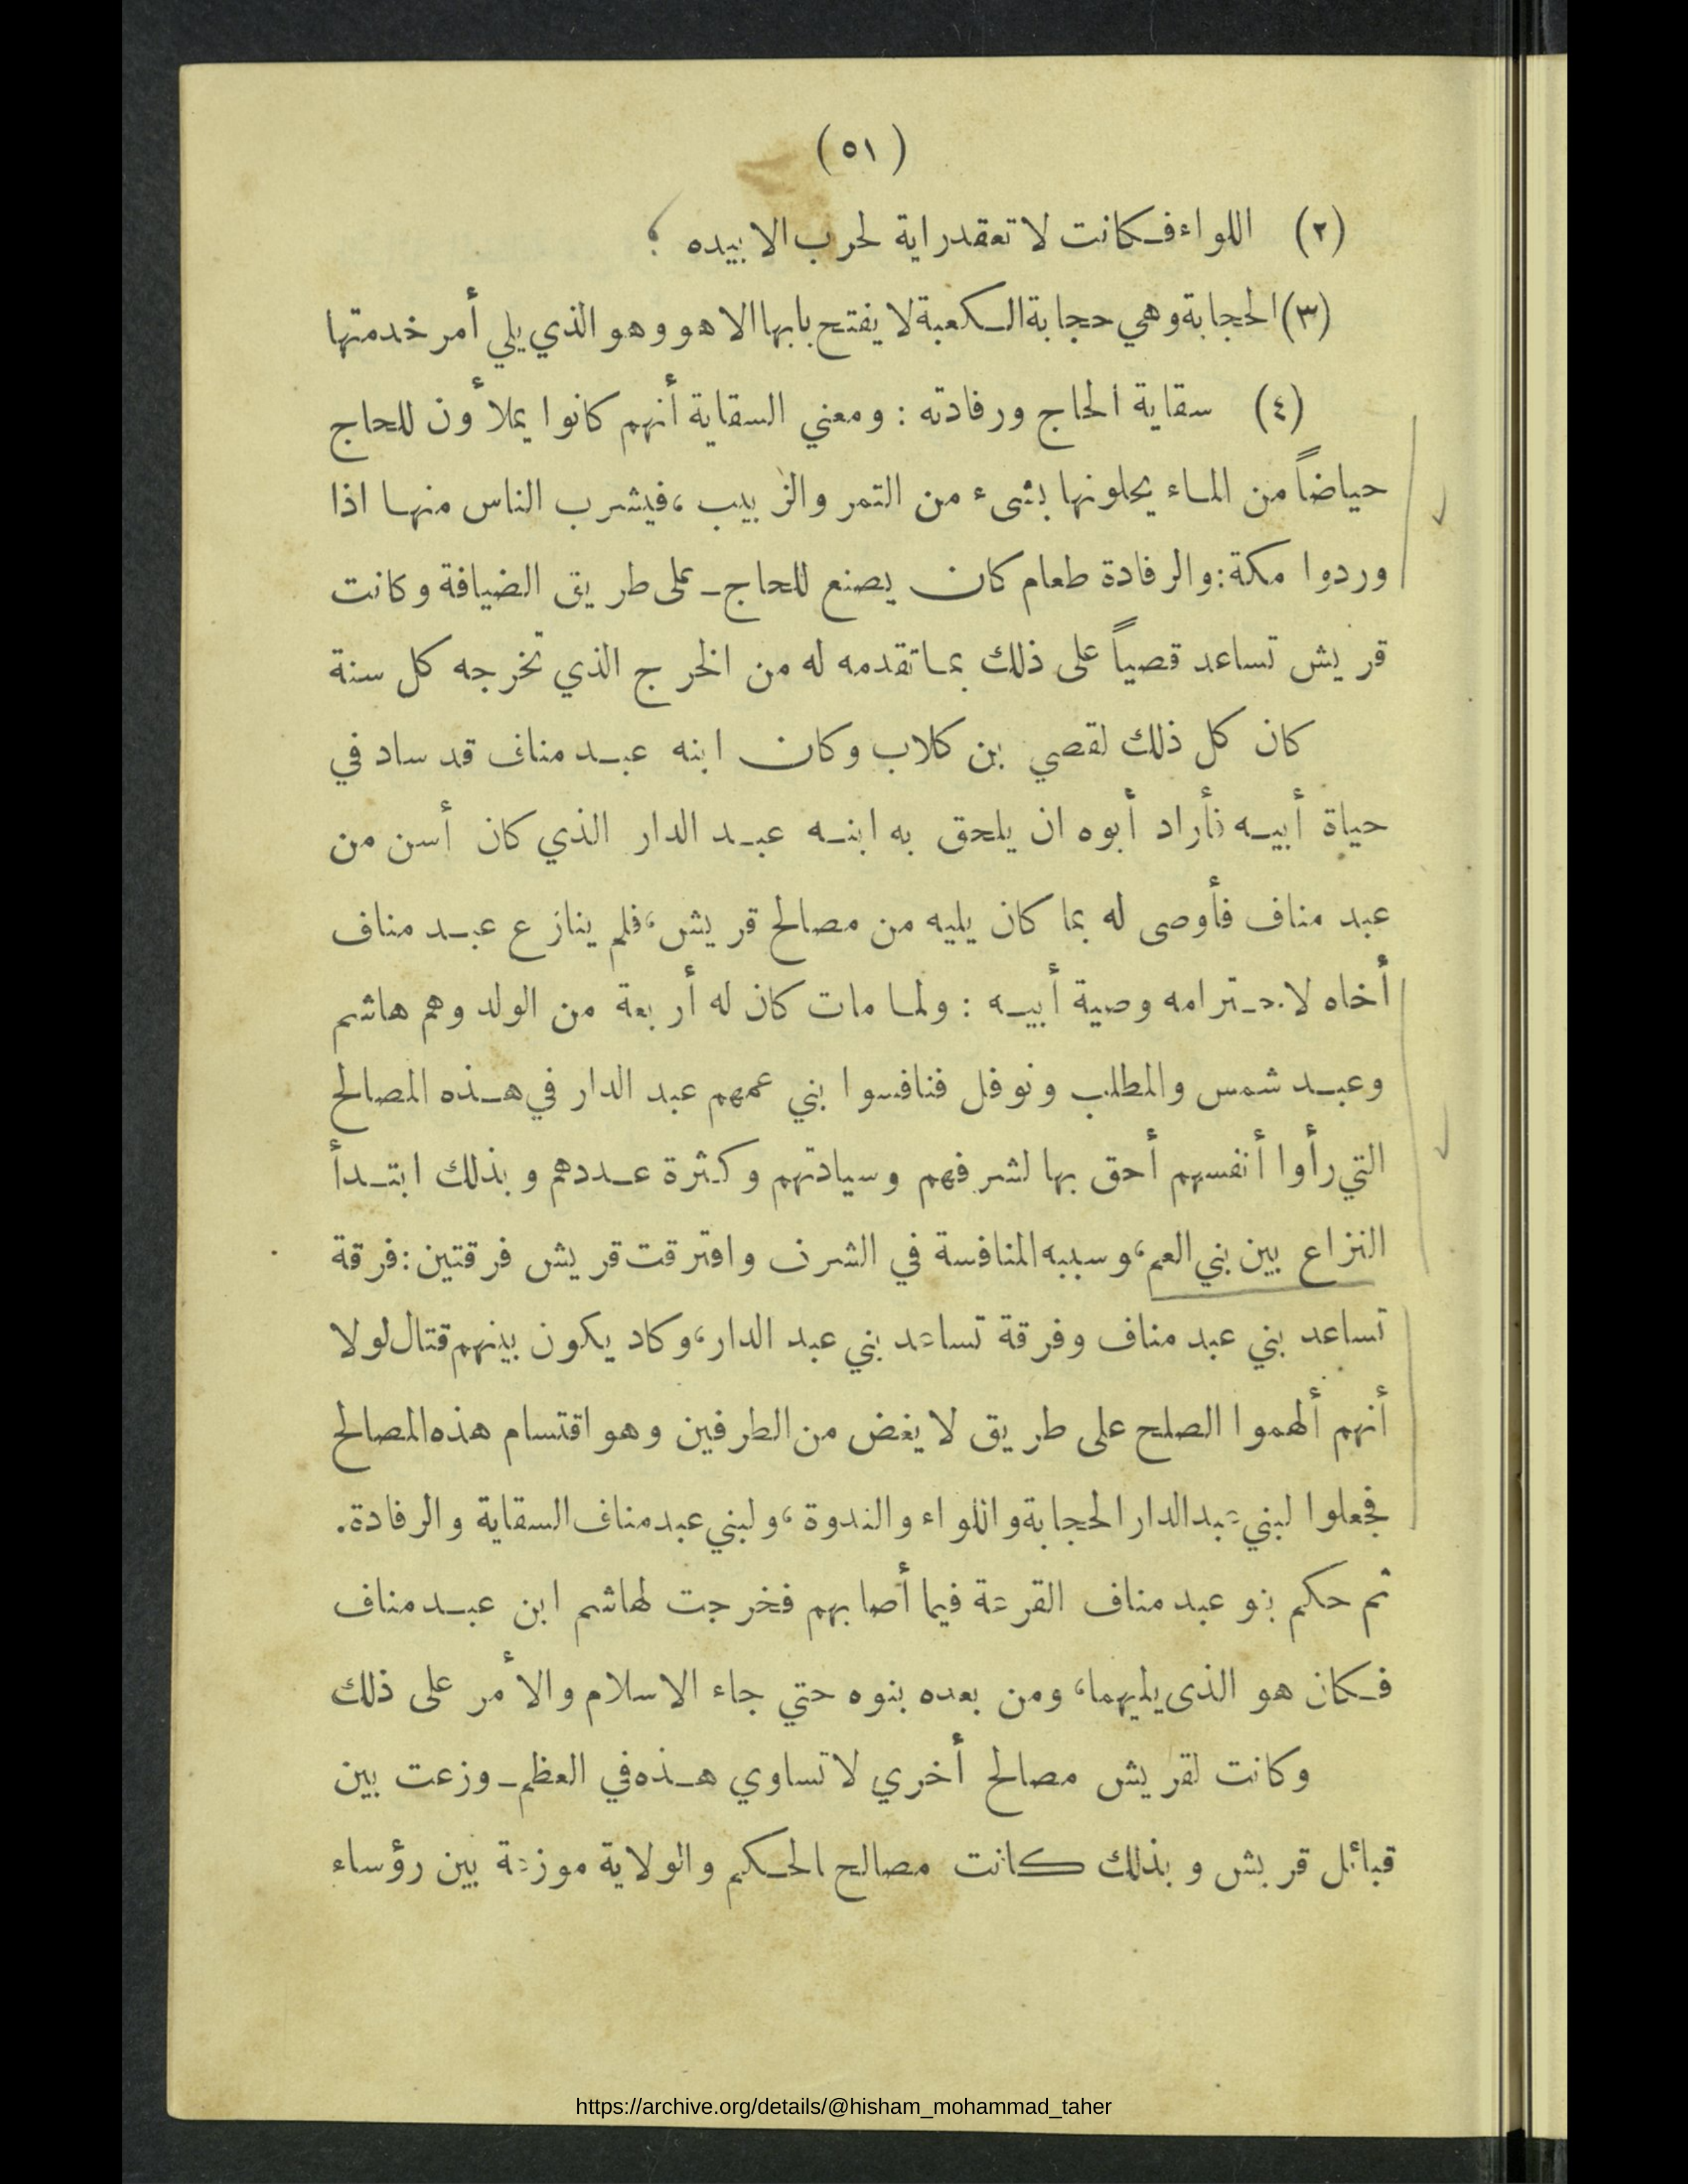 (٥١)
(٢) اللواء فكانت لا تعقد راية لحرب الا بيده
(٣) الحجابة وهي حجابة الكعبة لا يفتح بابها الا هو وهو الذي يلي أمر خدمتها
(٤) سقاية الحاج ورفادته : ومعني السقاية أنهم كانوا يملأون للحاج
حياضاً من الماء يحلونها بشىء من التمر والزبيب ، فيشرب الناس منها اذا
وردوا مكة : والرفادة طعام كان يصنع للحاج ـ على طريق الضيافة وكانت
قريش تساعد قصياً على ذلك بما تقدمه له من الخرج الذي تخرجه كل سنة
كان كل ذلك لقصي بن كلاب وكان ابنه عبد مناف قد ساد في
حياة أبيه فأراد أبوه ان يلحق به ابنه عبد الدار الذي كان أسن من
عبد مناف فأوصى له بما كان يليه من مصالح قريش ، فلم ينازع عبد مناف
أخاه لاحترامه وصية أبيه : ولما مات كان له أربعة من الولد وهم هاشم
وعبد شمس والمطلب ونوفل فنافسوا بني عمهم عبد الدار في هذه المصالح
التي رأوا أنفسهم أحق بها لشرفهم وسيادتهم وكثرة عددهم وبذلك ابتدأ
النزاع بين بني العم ، وسببه المنافسة في الشرف وافترقت قريش فرقتين : فرقة
تساعد بني عبد مناف وفرقة تساعد بني عبد الدار ، وكاد يكون بينهم قتال لولا
أنهم ألهموا الصلح على طريق لا يغض من الطرفين وهو اقتسام هذه المصالح
فجعلوا لبني عبد الدار الحجابة واللواء والندوة ، ولبني عبد مناف السقاية والرفادة .
ثم حكم بنو عبد مناف القرعة فيما أصابهم فخرجت لهاشم ابن عبد مناف
فكان هو الذى يليهما ، ومن بعده بنوه حتي جاء الاسلام والأمر على ذلك
وكانت لقريش مصالح أخري لا تساوي هذه في العظم ـ وزعت بين
قبائل قريش وبذلك كانت مصالح الحكم والولاية موزعة بين رؤساء
https://archive.org/details/@hisham_mohammad_taher